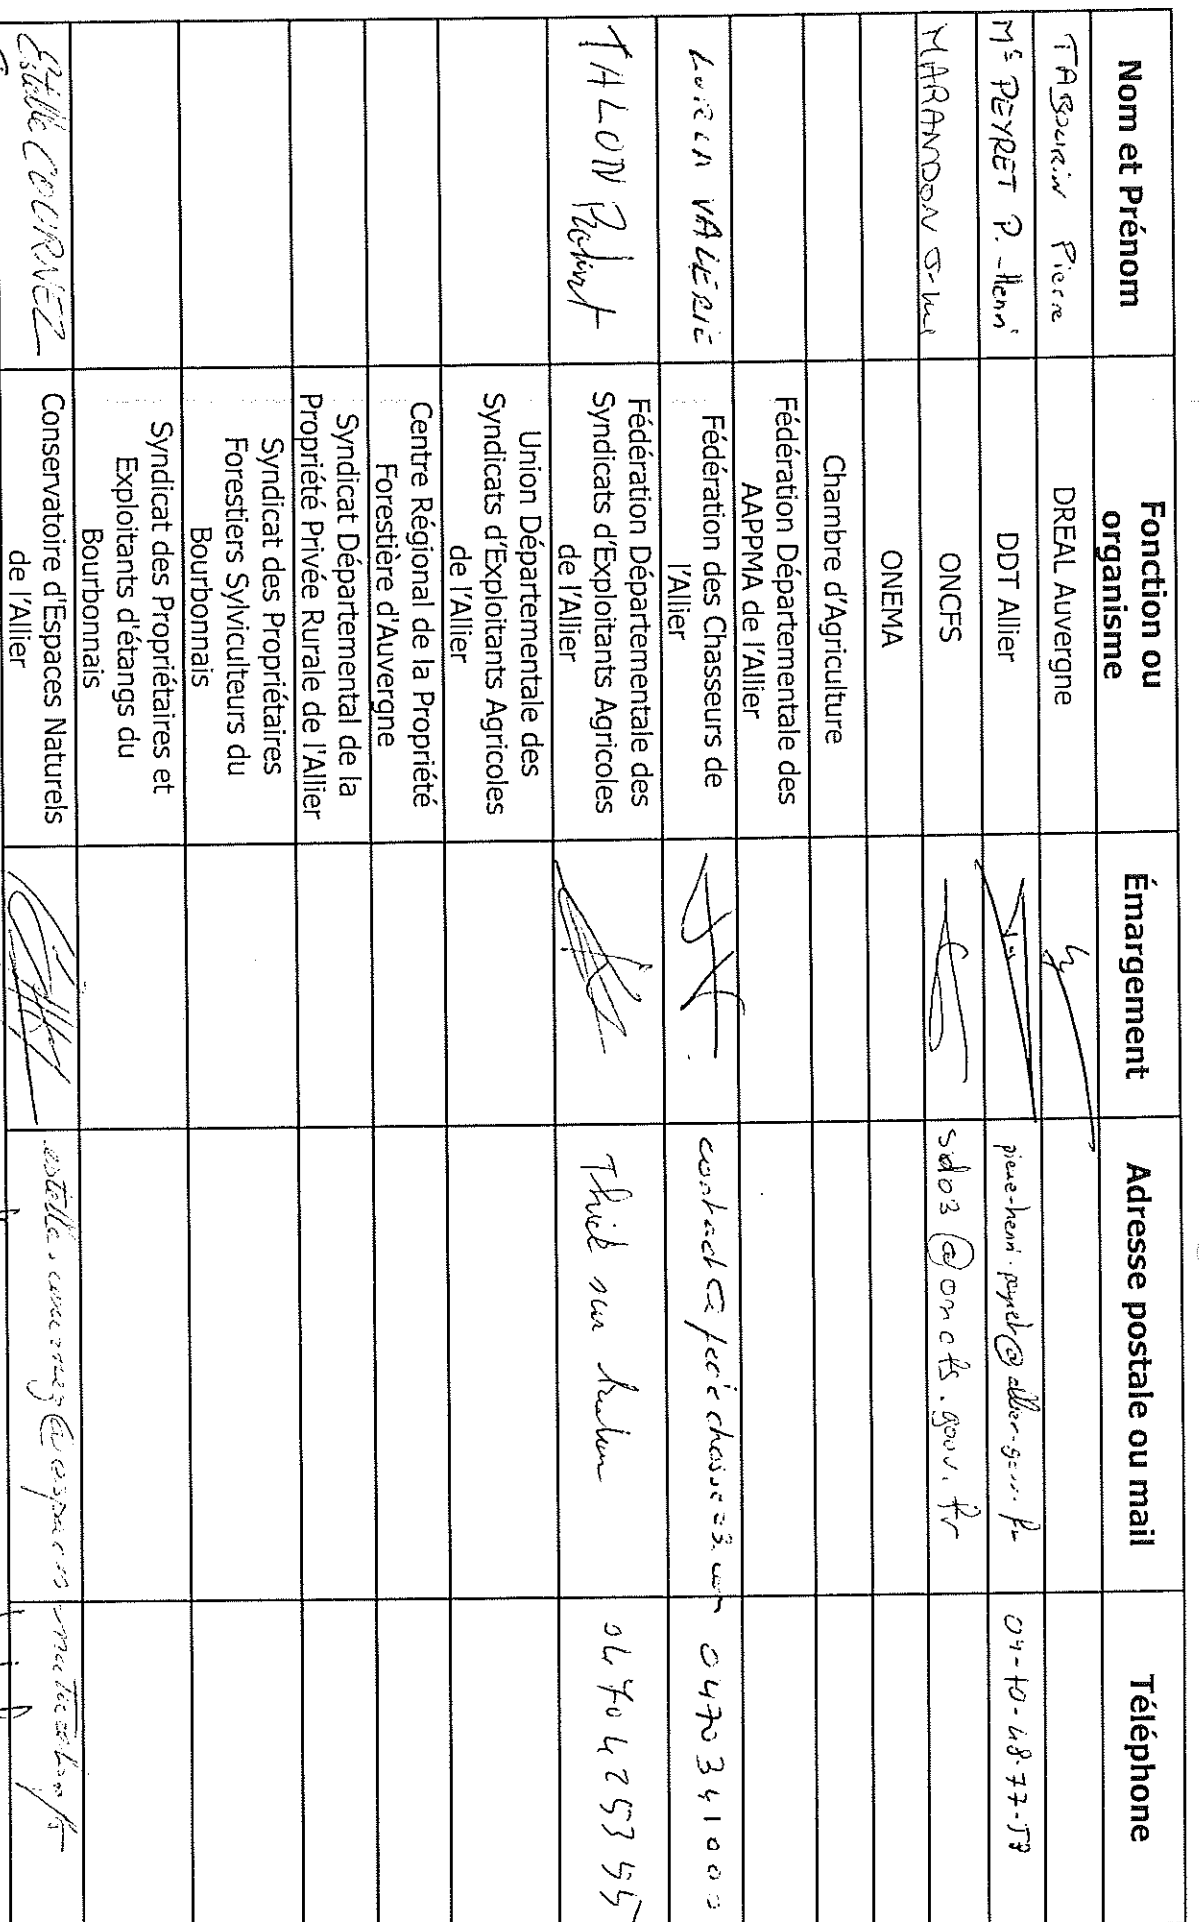 Nom et Prénom
Fonction ou
organisme
Émargement
Adresse postale ou mail
Téléphone
TABOURIN Pierre
DREAL Auvergne
Mr PEYRET P.-Henri
DDT Allier
pierre-henri.peyret@allier.gouv.fr
04-70-48-77-57
MARANDON
ONCFS
sd03@oncfs.gouv.fr
ONEMA
Chambre d'Agriculture
Fédération Départementale des
AAPPMA de l'Allier
VALÉRIE
Fédération des Chasseurs de
l'Allier
0470341000
TALON Robert
Fédération Départementale des
Syndicats d'Exploitants Agricoles
de l'Allier
Thiel sur
0470425355
Union Départementale des
Syndicats d'Exploitants Agricoles
de l'Allier
Centre Régional de la Propriété
Forestière d'Auvergne
Syndicat Départemental de la
Propriété Privée Rurale de l'Allier
Syndicat des Propriétaires
Forestiers Sylviculteurs du
Bourbonnais
Syndicat des Propriétaires et
Exploitants d'étangs du
Bourbonnais
Estelle COURNEZ
Conservatoire d'Espaces Naturels
de l'Allier